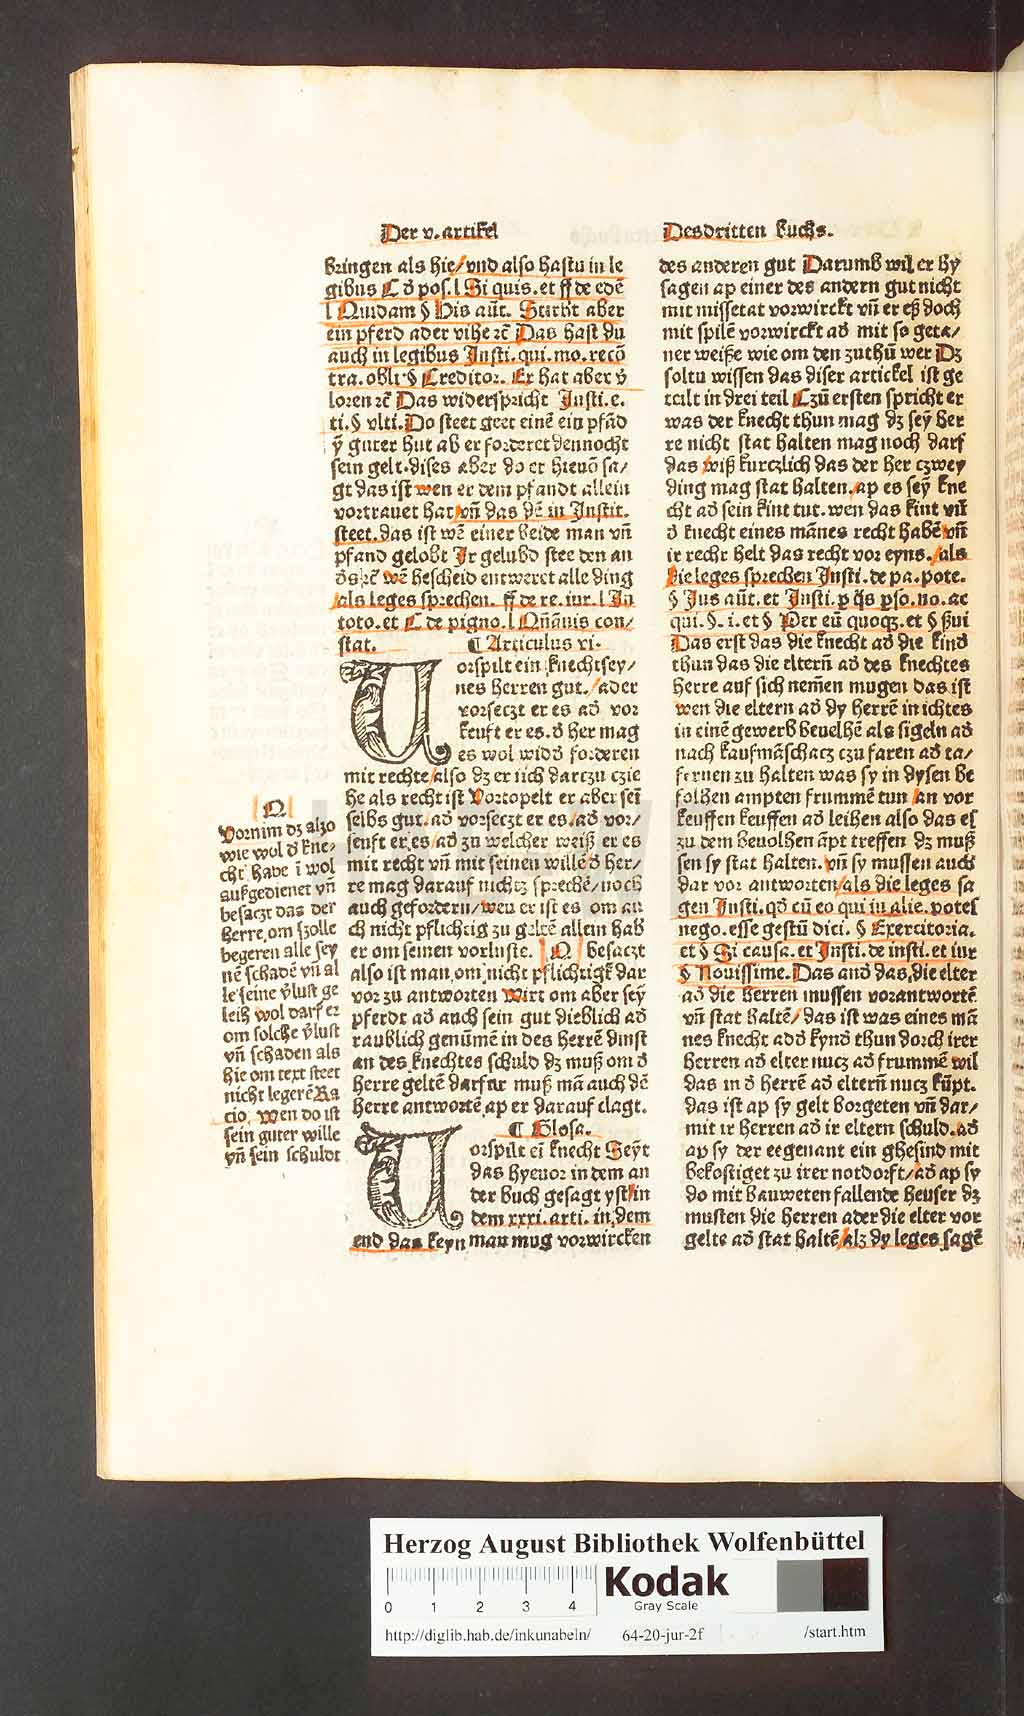 Der v. artikel
bringen als hie/ vnd also hastu in le
gibus C ð pos. l Si quis. et ff de edẽ
l Quidam § His aũt. Stirbt aber
ein pferd ader vihe ꝛc̃ Das hast du
auch in legibus Insti. qui. mo. recõ
tra. obli. § Creditor. Er hat aber ṽ
loren ꝛc̃ Das widerspricht Insti. e.
ti. § vlti. Do steet geet einẽ ein pfãd
ỹ guter hut ab er forderet dennocht
sein gelt. dises aber do er hieuõ sa/
gt das ist wen er dem pfandt allein
vortrauet hat vñ das dẽ in Instit.
steet. das ist wẽ einer beide man vñ
pfand gelobt Ir gelubd stee den an
ðs ꝛc̃ wẽ bescheid entweret alle ding
als leges sprechen. ff de re. iur. l In
toto. et C de pigno. l Qñãuis con/
stat.
¶ Articulus vi.
Uorspilt ein knecht sey/
nes herren gut. / ader
vorseczt er es að vor
keuft er es. ð her mag
es wol widð forderen
mit rechte/ also dz er sich darczu czie
he als recht ist Vortopelt er aber sei
selbs gut. að vorseczt er es / að vor/
keuft er es / að zu welcher weiß er es
mit recht vñ mit seinen willẽ ð her/
re mag darauf nichtz sprechẽ / noch
auch gefordern / wen er ist es om au
ch nicht pflichtig zu geltẽ allein hab
er om seinen vorluste. N besaczt
also ist man om nicht pflichtigk dar
vor zu antworten Wirt om aber seỹ
pferdt að auch sein gut dieblich að
raublich genũmẽ in des herrẽ dinst
an des knechtes schuld dz muß om ð
herre geltẽ darfur muß mã auch dẽ
herre antwortẽ ap er darauf clagt.
¶ Glosa.
Uorspilt ei knecht Seyt
das hyeuor in dem an
der buch gesagt yst / in
dem xxxi. arti. in dem
end das keyn man mug vorwircken
N
Vornim dz alzo
wie wol ð kne/
cht habe ĩ wol
aufgedienet vñ
besaczt das der
herre om szolle
begeren alle sey
nẽ schadẽ vñ al
le seine ṽlust ge
leih wol darf er
om solche ṽlust
vñ schaden als
hie om text steet
nicht legerẽ Ra
cio. Wen do ist
sein guter wille
vñ sein schuldt
Des dritten buchs.
des anderen gut Darumb wil er hy
sagen ap einer des andern gut nicht
mit missetat vorwirckt vñ er eß doch
mit spilẽ vorwirckt að mit so geta/
ner weiße wie om den zuthũ wer Dz
soltu wissen das diser artickel ist ge
teilt in drei teil Czũ ersten spricht er
was der knecht thun mag dz seỹ her
re nicht stat halten mag noch darf
das wiß kurczlich das der her czwey
ding mag stat halten. / ap es seỹ kne
cht að sein kint tut. wen das kint vñ
ð knecht eines mãnes recht habẽ vñ
ir recht helt das recht vor eyns. / als
die leges sprechen Insti. de pa. pote.
§ Ius aũt. et Insti. ꝑ q̃s ꝑso. no. ac
qui. §. i. et § Per eũ quoqꝫ. et § ßui
Das erst das die knecht að die kind
thun das die elterñ að des knechtes
herre auf sich nem̃en mugen das ist
wen die eltern að dy herrẽ in ichtes
in einẽ gewerb beuelhẽ als sigeln að
nach kaufmãschacz czu faren að ta/
fernen zu halten was sy in dysen be
folhen ampten frummẽ tun / an vor
keuffen keuffen að leihen also das es
zu dem beuolhen ãpt treffen dz muß
sen sy stat halten. vñ sy mussen auch
dar vor antworten / als die leges sa
gen Insti. qð cũ eo qui in alie. potes
nego. esse gestũ dici. § Exercitoria.
et § Si causa. et Insti. de insti. et iur
§ Nouissime. Das anð das die elter
að die herren mussen vorantwortẽ
vñ stat haltẽ / das ist was eines mã
nes knecht adð kynð thun dorch irer
herren að elter nucz að frummẽ wil
das in ð herrẽ að elterñ nucz kũpt.
das ist ap sy gelt borgeten vñ dar/
mit ir herren að ir eltern schuld. að
ap sy der eegenant ein ghesind mit
bekostiget zu irer notdorft / að ap sy
do mit bauweten fallende heuser dz
musten die herren ader die elter vor
gelte að stat haltẽ / alz dy leges sagẽ
Herzog August Bibliothek Wolfenbüttel
0 1 2 3 4
Kodak
Gray Scale
http://diglib.hab.de/inkunabeln/ 64-20-jur-2f /start.htm